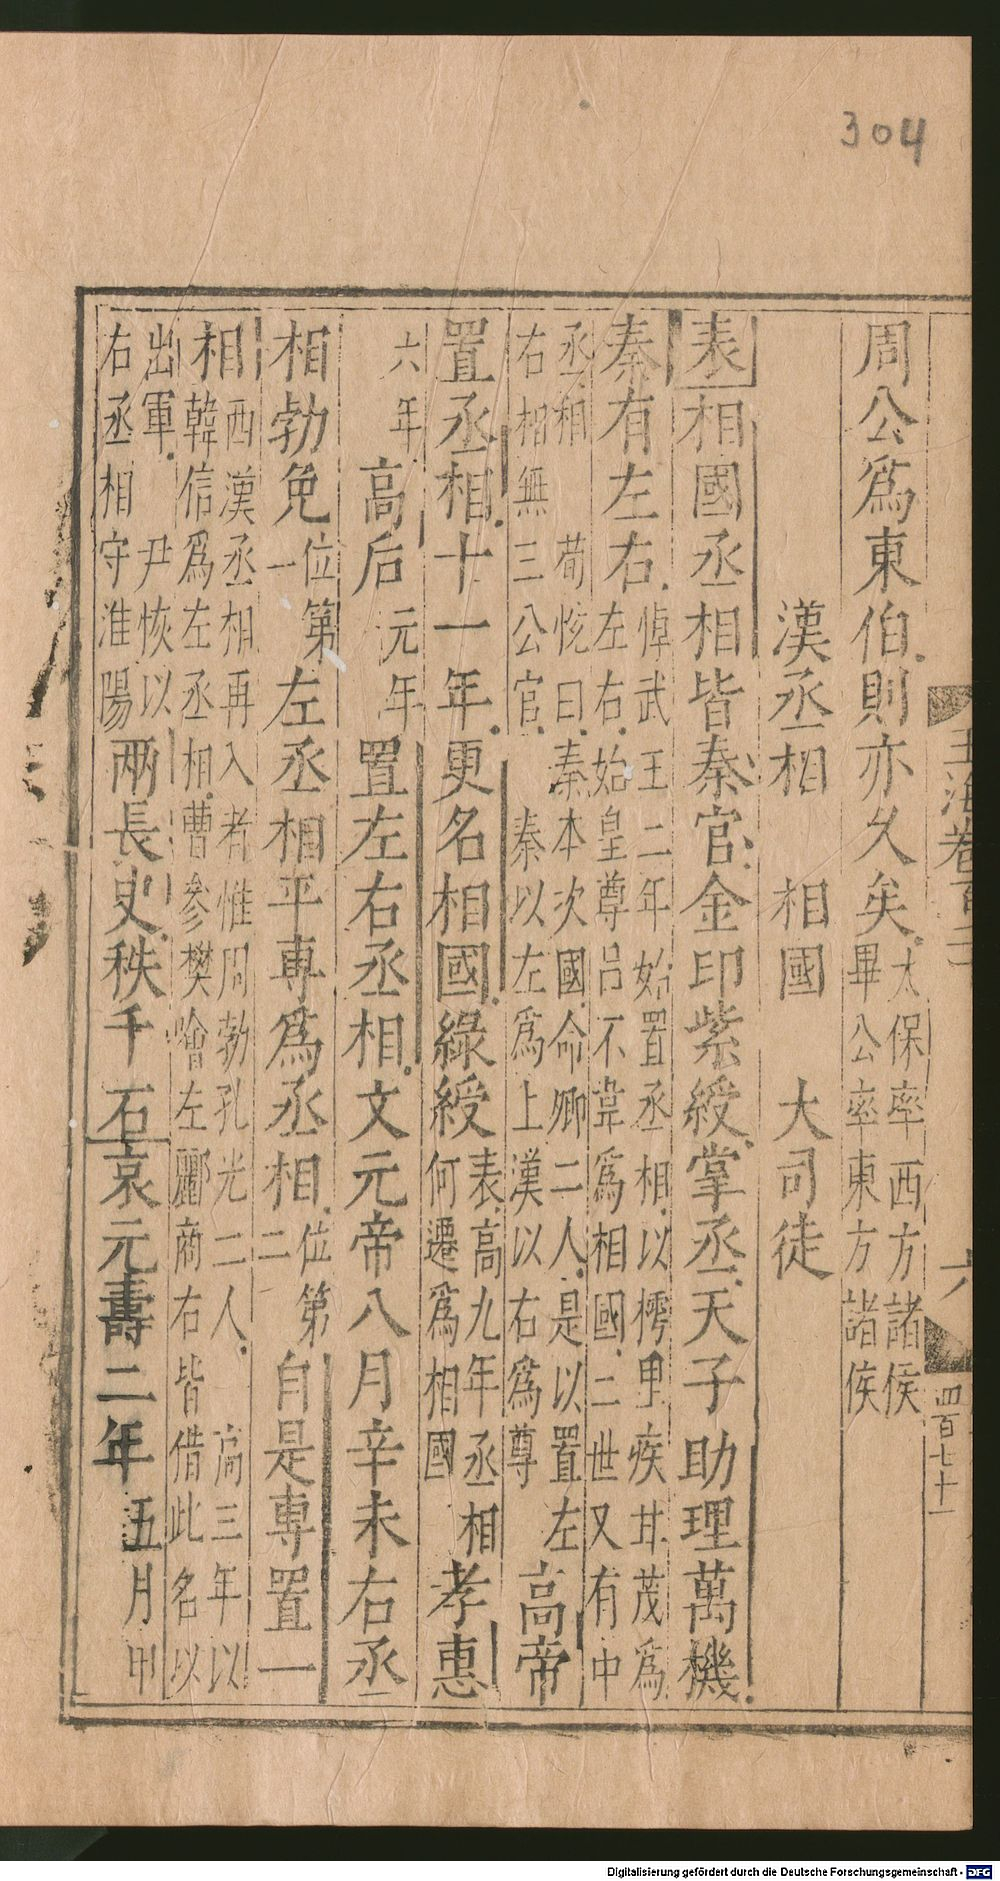 304
玉海卷百二
六
四百七十一
周公爲東伯則亦久矣太保率西方諸侯
畢公率東方諸侯
漢丞相 相國 大司徒
表相國丞相皆秦官金印紫綬掌丞天子助理萬機
秦有左右悼武王二年始置丞相以樗里疾甘茂爲
左右始皇尊呂不韋爲相國二世又有中
丞相 荀恱曰秦本次國命卿二人是以置左
右相無三公官 秦以左爲上漢以右爲尊
高帝
置丞相十一年更名相國綠綬表高九年丞相
何遷爲相國
孝惠
六年
高后元年
置左右丞相文元帝八月辛未右丞
相勃免位第
一
左丞相平專爲丞相位第
二
自是專置一
相西漢丞相再入者惟周勃孔光二人 高三年以
韓信爲左丞相曹參樊噲左酈商右皆借此名以
出軍 尹恢以
右丞相守淮陽
兩長史秩千石哀元壽二年五月甲
Digitalisierung gefördert durch die Deutsche Forschungsgemeinschaft - DFG